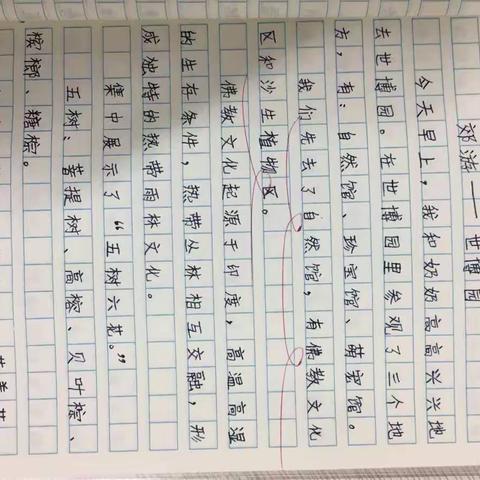 郊游——世博园
今天早上，我和奶奶高高兴兴地
去世博园。在世博园里参观了三个地
方，有：自然馆、珍宝馆、萌宠馆。
我们先去了自然馆，有佛教文化
区和沙生植物区。
佛教文化起源于印度，高温高湿
的生存条件，热带丛林相互交融，形
成独特的热带雨林文化。
集中展示了“五树六花。”
五树：菩提树、高榕、贝叶棕、
槟榔、糖棕。